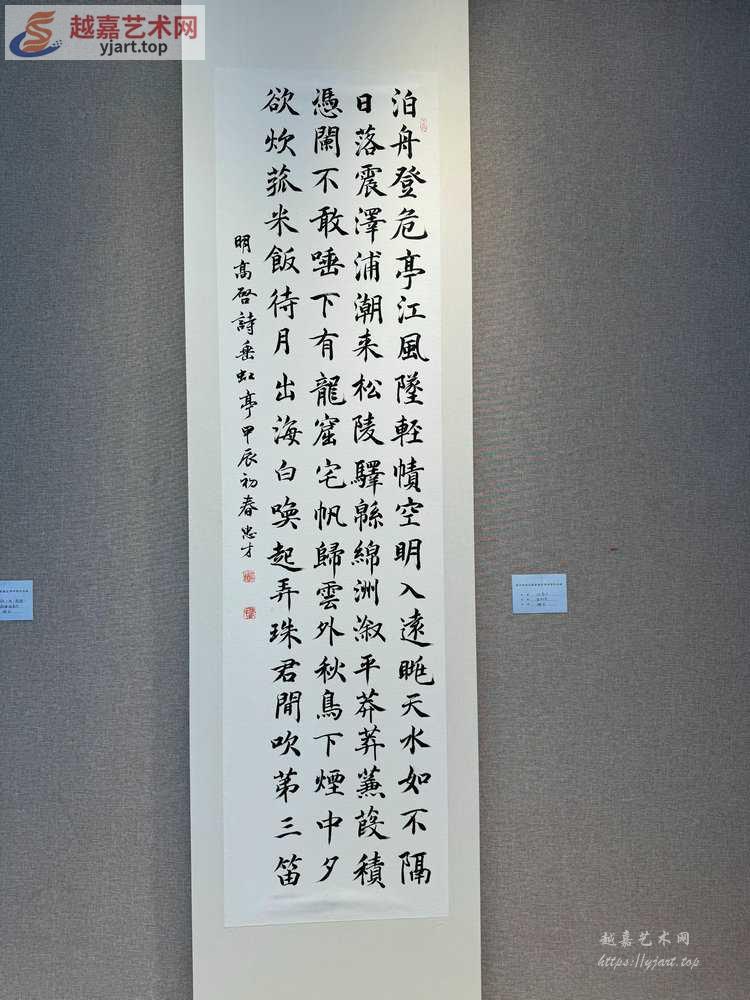 越嘉艺术网
yjart.top
泊舟登危亭江風墜輕幘空明入遠眺天水如不隔
日落震澤浦潮来松陵驛緜綿洲溆平莽莽蒹葭積
憑闌不敢唾下有龍窟宅帆歸雲外秋鳥下煙中夕
欲炊菰米飯待月出海白喚起弄珠君閒吹第三笛
明高啓詩垂虹亭甲辰初春忠才
越嘉艺术网
https://yjart.top